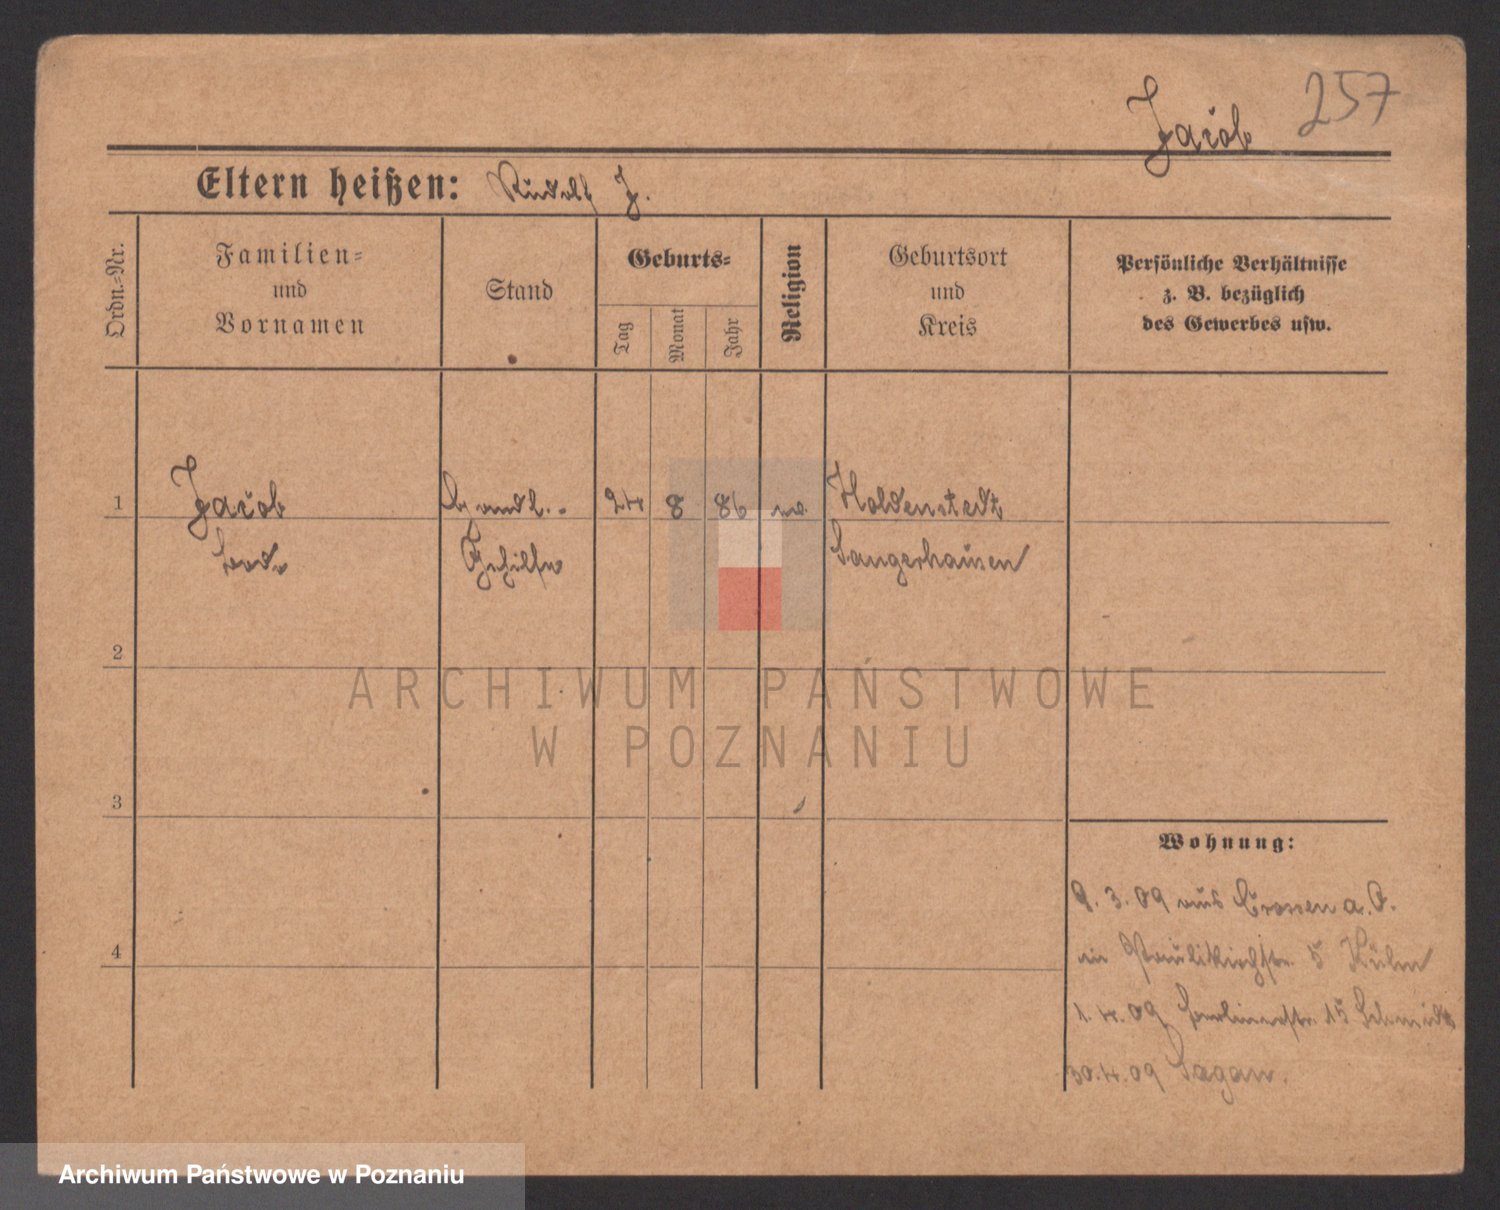 Jacob 257
Eltern heißen: Rudolf J.
Ordn.=Nr.
Familien=
und
Vornamen
Stand
Geburts=
Tag
Monat
Jahr
Religion
Geburtsort
und
Kreis
Persönliche Verhältnisse
z. B. bezüglich
des Gewerbes usw.
1 Jacob 24 8 86 Holdenstedt
Gehilfe Sangerhausen
2
ARCHIWUM PAŃSTWOWE
W POZNANIU
3
Wohnung:
9. 3. 09 aus Crossen a. O.
in Paulikirchstr. 5 Kühn
4
1. 4. 09 Berlinerstr. 15 Schmidt
30. 4. 09 Sagan.
Archiwum Państwowe w Poznaniu